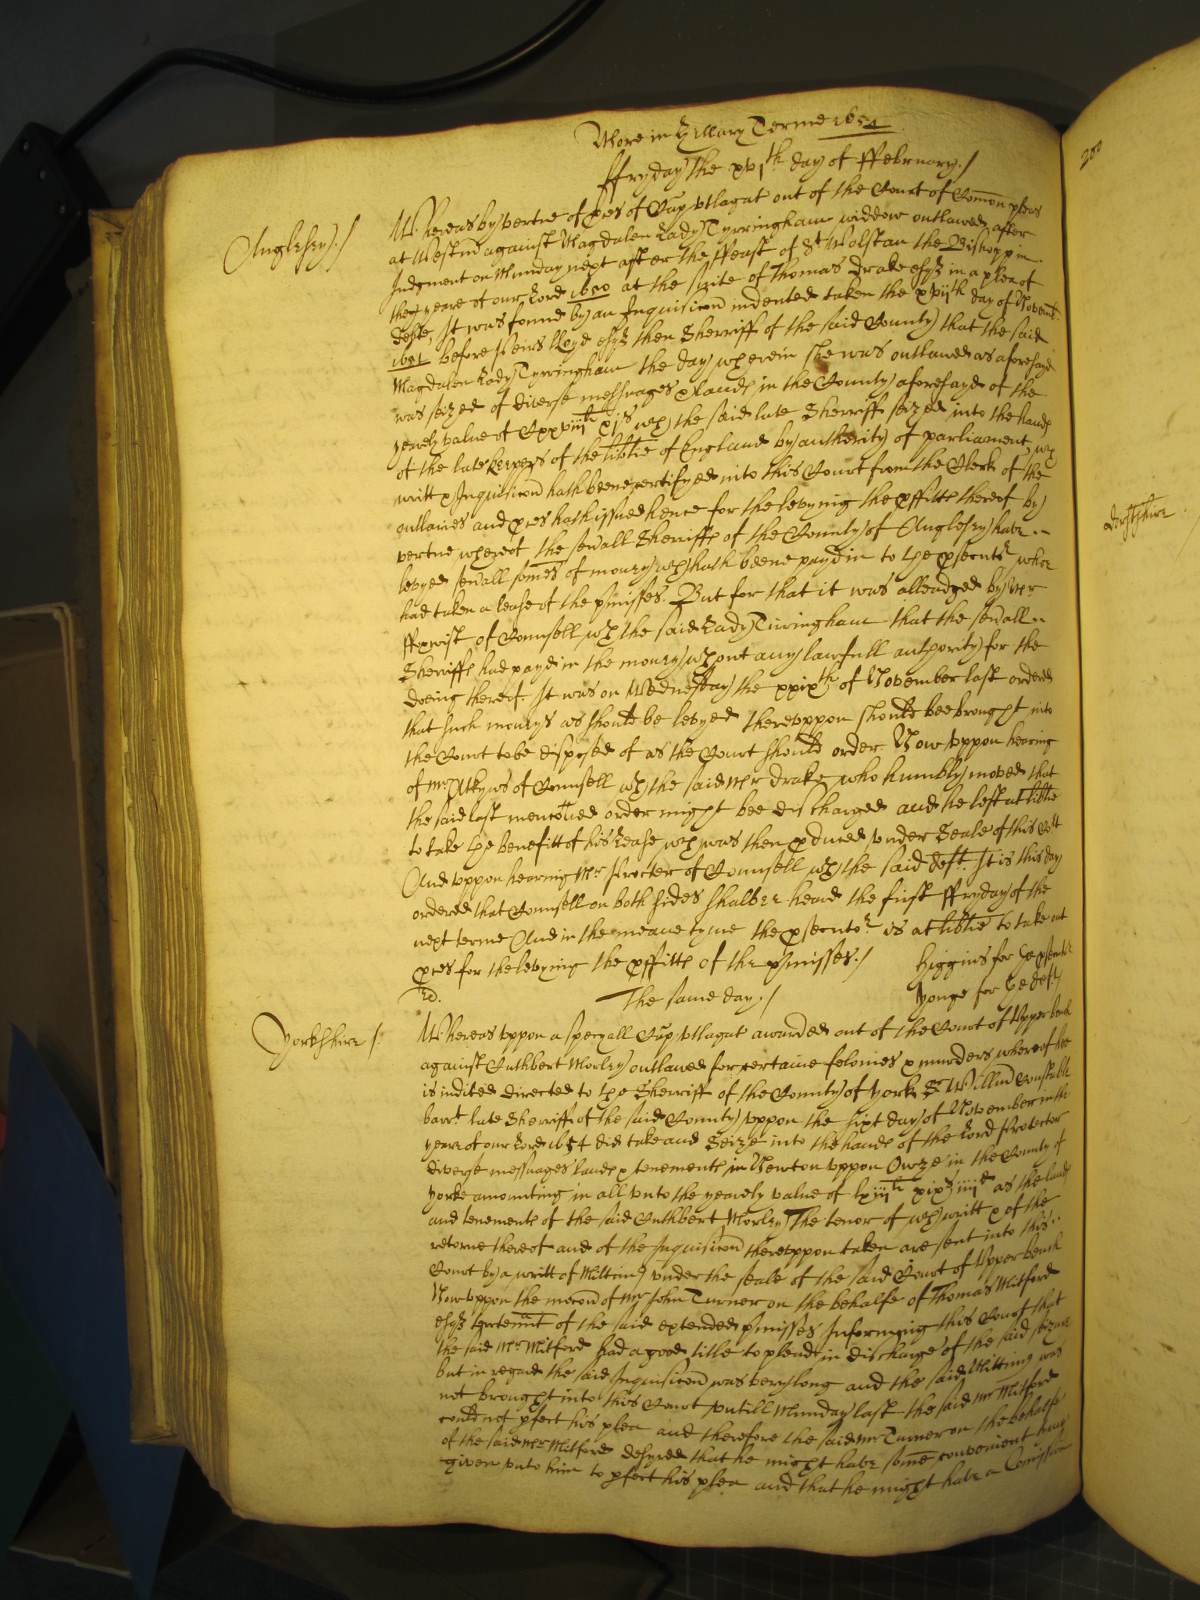 More in Hillary Terme 1654
ffryday the xvjth day of ffebruary./
Anglesey./
Whereas by vertue of pces of Cap vtlagat out of the Court of Comon pleas
at Westm against Magdalen Lady Tyrringham widdow outlawed after
Judgment on Munday next after the ffeast of St Wolstan the Bishopp in
the yeare of our Lord 1650 at the suite of Thomas Drake esqr in a plea of
debte, It was found by an Inquisicon indented taken the xviijth day of Novemb
1651 before Lloyd esqr then Sherriff of the said County that the said
Magdalen Lady Tyrringham the day wherein she was outlawed as aforesayd
was seized of diverse messuages & lands in the County aforesayd of the
yearly value of Cxxviijli xjs wch the said late Sherriff seized into the hands
of the late keepers of the libtie of England by authority of parliament, wch
writt & Inquisicon hath beene certifyed into this Court from the Clerk of the
outlaries and pces hath issued hence for the levying the pffitts thereof by
vertue whereof the sevall Sherriffs of the County of Anglesey have --
levyed sevall somes of money wch hath beene payd in to the psecutr who
had taken a lease of the pmisses. But for that it was alleadged by Mr
of Counsell wth the said Lady Tirringham that the sevall --
Sherriffs had payd in the money wthout any lawfull authority for the
doeing thereof. It was on Wednesday the xxixth of November last ordered
that such moneys as should be levyed therevppon should bee brought into
the Court to be disposed of as the Court should order Now vppon hearing
of Mr Atkyns of Counsell wth the said Mr Drake who humbly moved that
the said last mentoned order might bee discharged and he left at libtie
to take the benefitt of his Lease wch was then pduced vnder Seale of this Cort
And vppon hearing Mr Procter of Counsell wth the said deft. It is this day
ordered that Counsell on both sides shalbee heard the first ffryday of the
next terme And in the meane tyme the psecutor is at libtie to take out
pces for the levying the pffitts of the pmisses./ Higgins for the psecutr
The same day./ Yonge for the deft./
Yorkshire /:
Whereas vppon a speciall Cap vtlagat awarded out of the Court of Vpper bench
against Cuthbert Morley outlawed for certaine felonies & murders whereof hee
is indited directed to the Sherriff of the County of York Sr Willm Constable
barrt late Sherriff of the said County vppon the sixt day of November in the
yeare of our Lord 1654 did take and Seize into the hands of the Lord Protector
diverse messuages lands & tenements in Newton vppon Owze in the County of
Yorke amounting in all vnto the yearely value of lxiijli xixs iiijd as the lands
and tenements of the said Cuthbert Morley The tenor of wch writt & of the
retorne thereof and of the Inquisicon therevppon taken are sent into this..
Court by a writt of Mittimus vnder the seale of the said Court of Vpper bench
Now vppon the mocon of Mr John Turner on the behalfe of Thomas Mitford
esqr tertennt of the said extended pmisses Informing this Court that
the said Mr Mitford had a good title to plead in discharge of the said seizure
but in regard the said Inquisicon was very long and the said Mittimus was
not brought into this Court vntill Munday last the said Mr Mitford
could not pfect his plea and therefore the said Mr Turner on the behalfe
of the said Mr Mitford desyred that he might have some convenient time
given vnto him to pfect his plea and that he might have a Comission
200